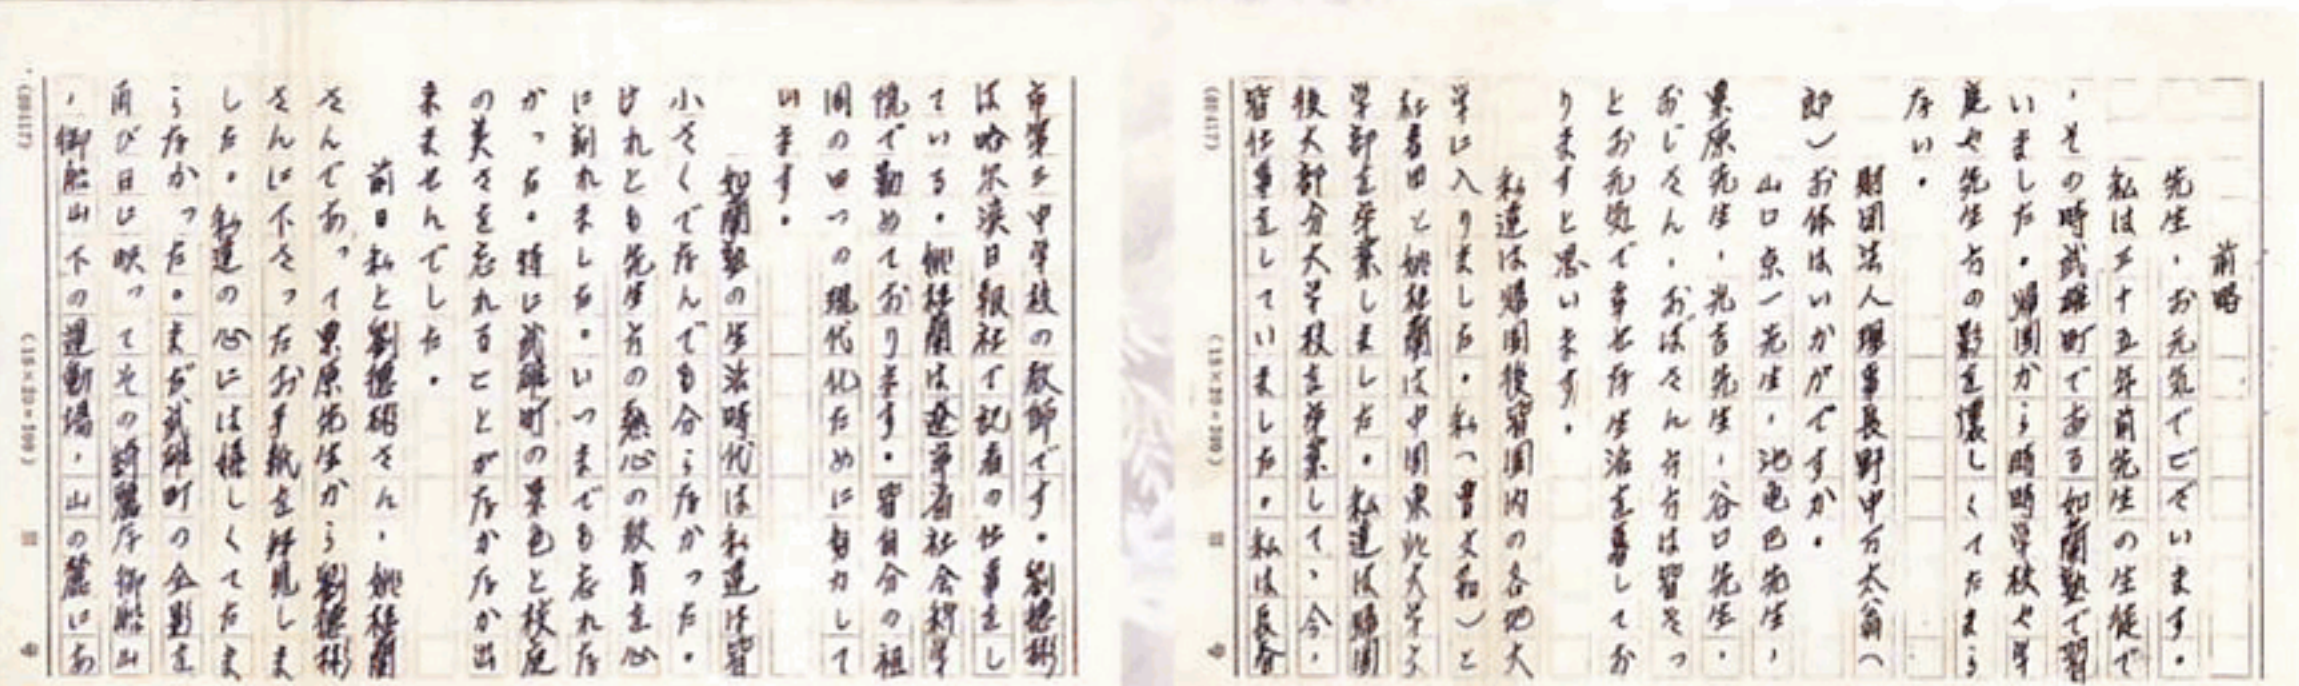 前略
先生、お元気でございます。
私は三十五年前先生の生徒で
、その時武雄町である如蘭塾で習
いました。帰国から時時学校や学
庭や先生方の影を懐しくてたまら
ない。
財団法人理事長野中万太翁(
郎)お体はいかがですか。
山口京一先生、池亀巴先生、
栗原先生、光吉先生、谷口先生、
おじさん、おばさん方方は皆きっ
とお元気で幸せな生活を暮してお
りますと思います。
私達は帰国後皆国内の各地大
学に入りました。私(曹文菊)と
杜香田と姚桂蘭は中国東北大学文
学部を卒業しました。私達は帰国
後大部分大学校を卒業して、今、
皆仕事をしていました。私は長春
市第三中学校の教師です。劉徳彬
は哈尔浜日報社で記者の仕事をし
ている。姚桂蘭は遼寧省社会科学
院で勤めております。皆自分の祖
国の四つの現代化ために努力して
います。
如蘭塾の生活時代は私達は皆
小さくてなんでも分らなかった。
けれとも先生方の熱心の教育を心
に別れました。いつまでも忘れな
かった。特に武雄町の景色と校庭
の美さを忘れることがなかなか出
来ませんでした。
前日私と劉徳彬さん、姚桂蘭
さんであって栗原先生から劉徳彬
さんに下さったお手紙を拝見しま
した。私達の心には懐しくてたま
らなかった。まだ武雄町の全影を
再び目に映ってその綺麗な御船山
、御船山下の運動場、山の麓にあ
(20417)
(15×20=300)
(20417)
(15×20=300)